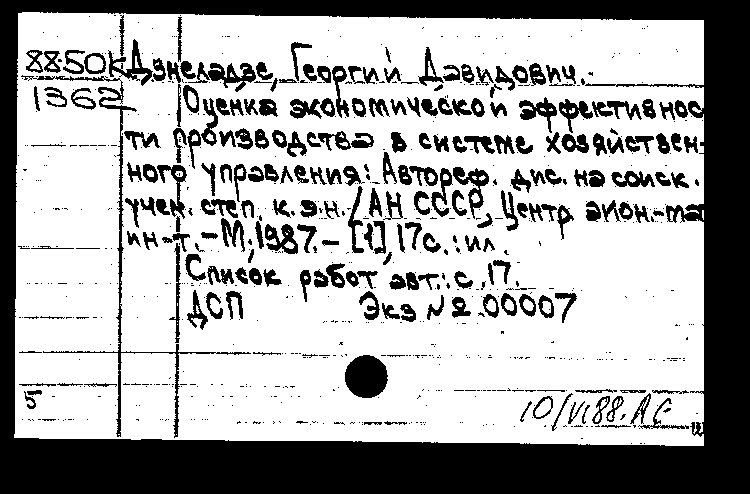 8850К Дзнеладзе, Георгий Давидович.-
1362 Оценка экономической эффективнос
ти производства в системе хозяйствен-
ного управления: Автореф. дис. на соиск.
учен. степ. к.э.н. / АН СССР, Центр. экон.-мат.
ин-т. - М., 1987. - [1], 17с.: ил.
Список работ авт.: с. 17.
ДСП Экз № 2 00007
5
10/VI88. АЕ